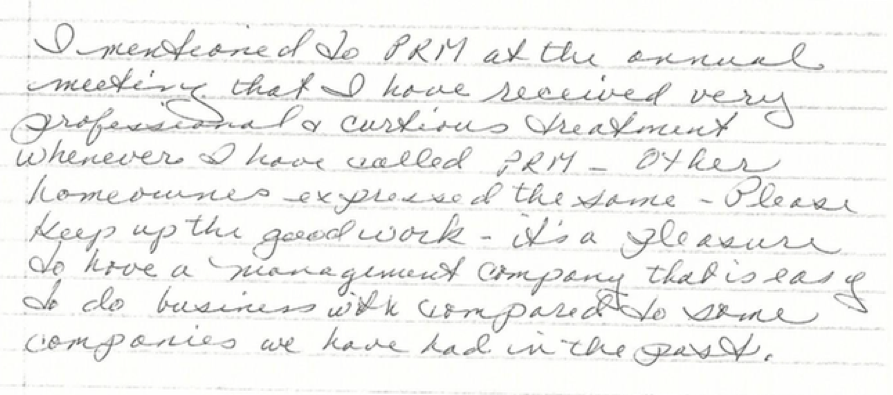 I mentioned to PRM at the annual
meeting that I have received very
professional & curtious treatment
whenever I have called PRM - Other
homeownes expressed the same - Please
keep up the good work - it's a pleasure
to have a management company that is easy
to do business with compared to some
companies we have had in the past.